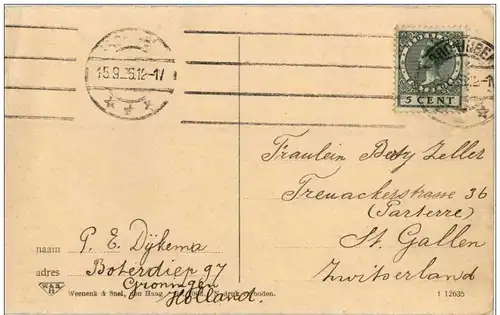 15.9 6.12-17
5 CENT
Fraulein Betty Zeller
Treuackerstrasse 36
(Parterre)
St. Gallen
Zwitserland
naam P. E. Dijkema
adres Boterdiep 97
Groningen
Holland.
W&S
H
Weenenk & Snel, den Haag
boden.
1 12635